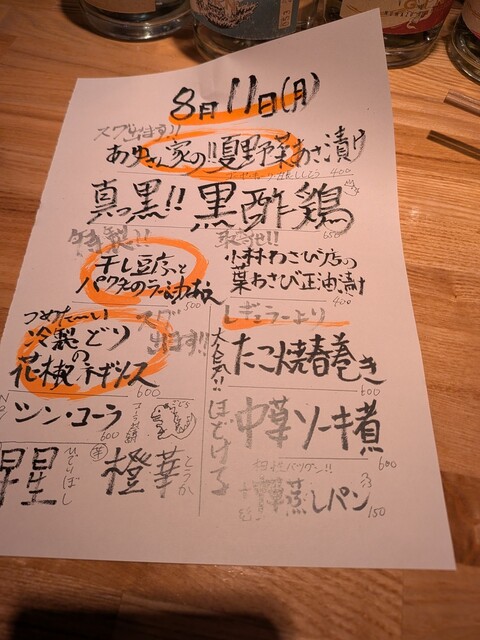 8月11日(月)
スグ出ます!!
あゆさん家の!!夏野菜あさ漬け
400
真っ黒!! 黒酢鶏
650
特製!!
干し豆腐と
パクチーのラー油和え
500
小林わさび店の
葉わさび正油漬け
400
つめた〜い
冷製どり
の
花椒ネギソース
600
スグ
出ます!!
レギュラーより
大人気!!
たこ焼春巻き
600
シン・コーラ
600
ほどける
中華ソーキ煮
600
早星
ひでりぼし
橙華
とうか
蒸しパン
150